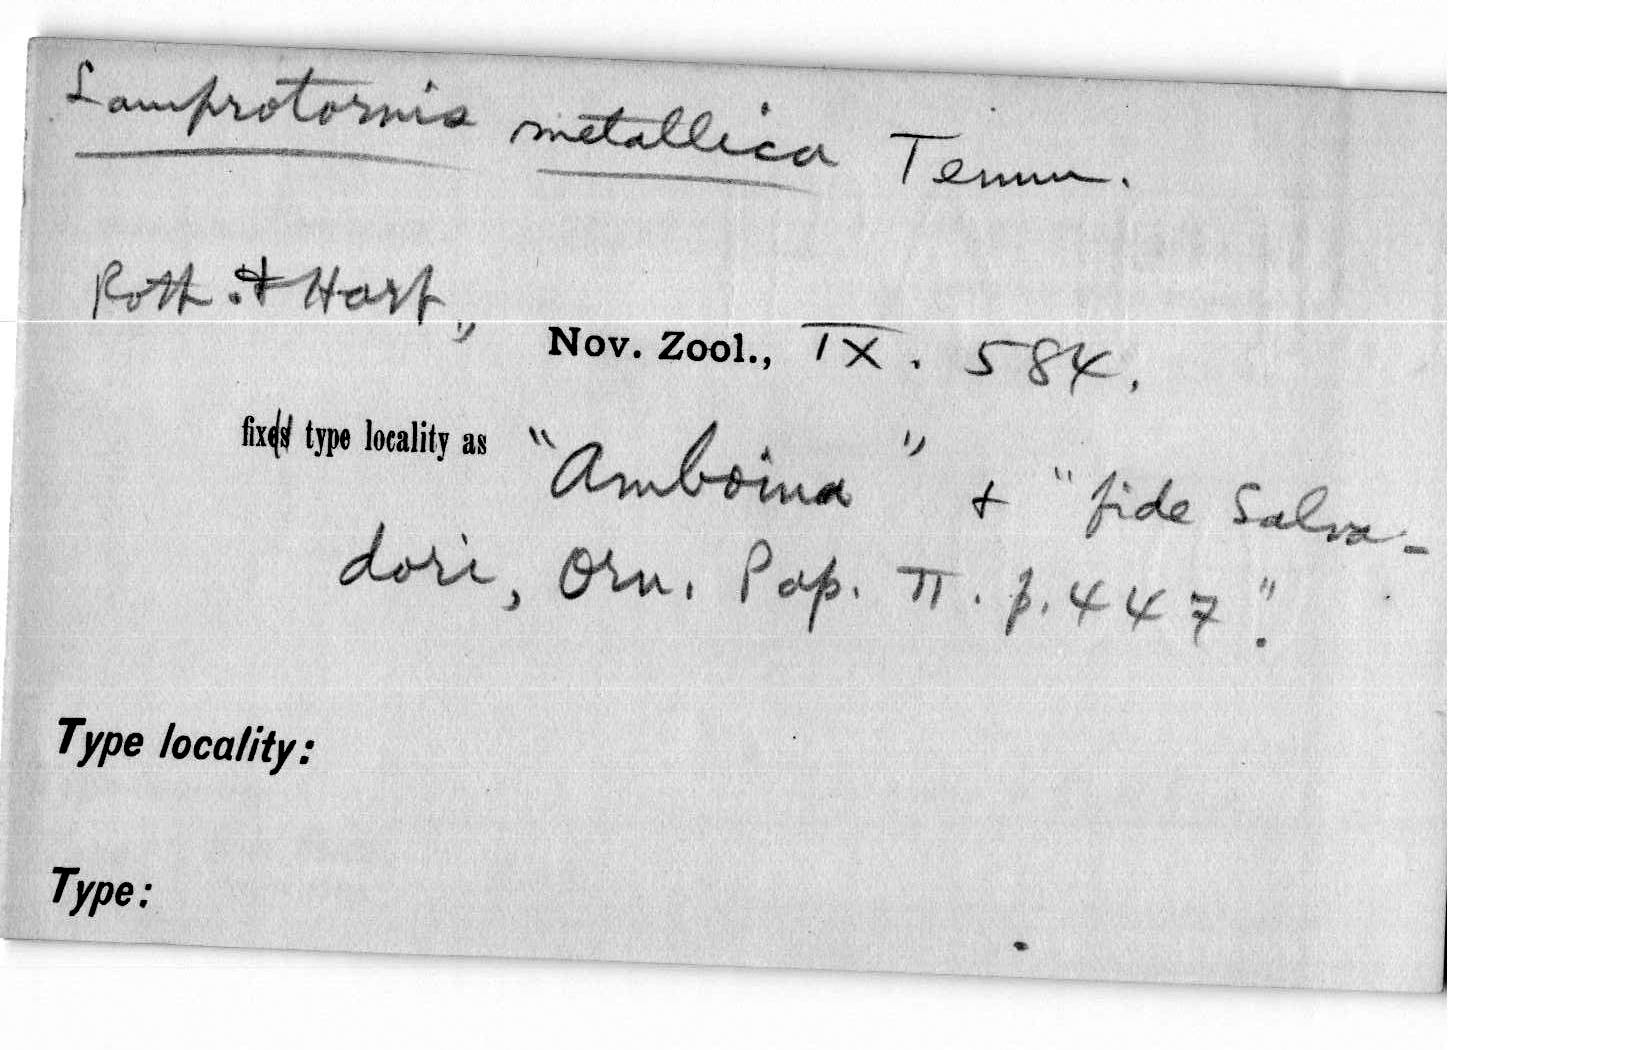 Lamprotornis metallica Temm.
Roth. & Hart,,
Nov. Zool., IX. 584.
fixes type locality as "Amboina" & "fide Salva-
dori, Orn. Pap. II. p. 447".
Type locality:
Type: